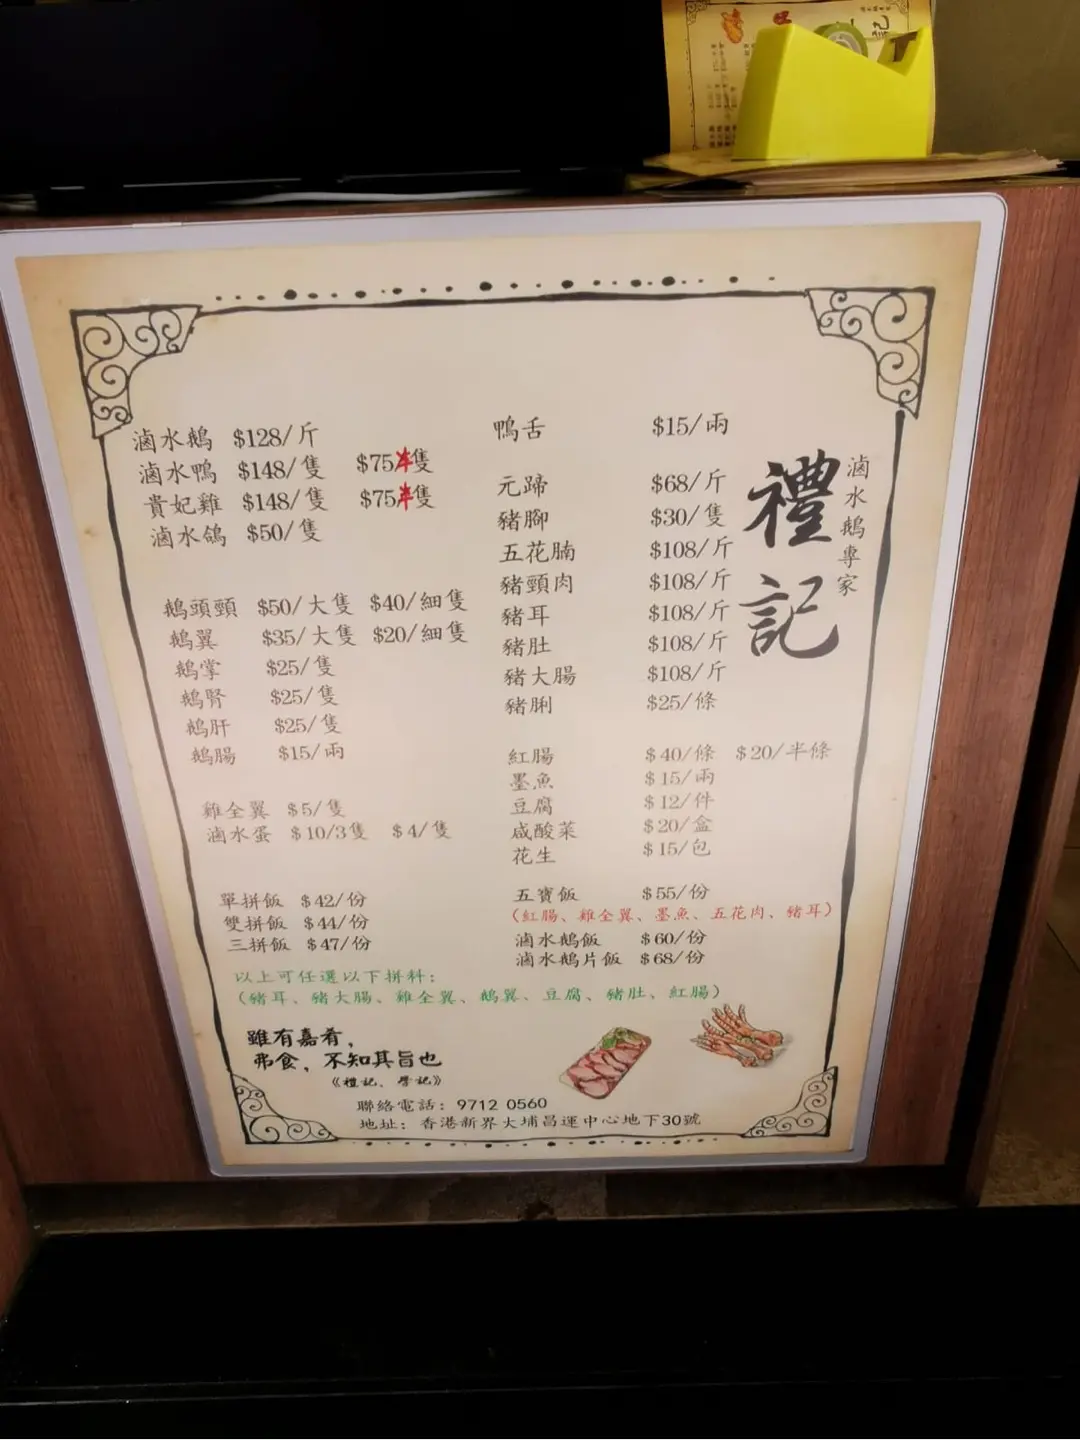 滷水鵝 $128/斤
滷水鴨 $148/隻 $75半隻
貴妃雞 $148/隻 $75半隻
滷水鴿 $50/隻
鵝頭頸 $50/大隻 $40/細隻
鵝翼 $35/大隻 $20/細隻
鵝掌 $25/隻
鵝腎 $25/隻
鵝肝 $25/隻
鵝腸 $15/兩
雞全翼 $5/隻
滷水蛋 $10/3隻 $4/隻
單拼飯 $42/份
雙拼飯 $44/份
三拼飯 $47/份
以上可任選以下拼料:
(豬耳、豬大腸、雞全翼、鵝翼、豆腐、豬肚、紅腸)
鴨舌 $15/兩
元蹄 $68/斤
豬腳 $30/隻
五花腩 $108/斤
豬頸肉 $108/斤
豬耳 $108/斤
豬肚 $108/斤
豬大腸 $108/斤
豬脷 $25/條
紅腸 $40/條 $20/半條
墨魚 $15/兩
豆腐 $12/件
咸酸菜 $20/盒
花生 $15/包
五寶飯 $55/份
(紅腸、雞全翼、墨魚、五花肉、豬耳)
滷水鵝飯 $60/份
滷水鵝片飯 $68/份
滷水鵝專家
禮記
雖有嘉肴,
弗食,不知其旨也
《禮記、學記》
聯絡電話: 9712 0560
地址: 香港新界大埔昌運中心地下30號